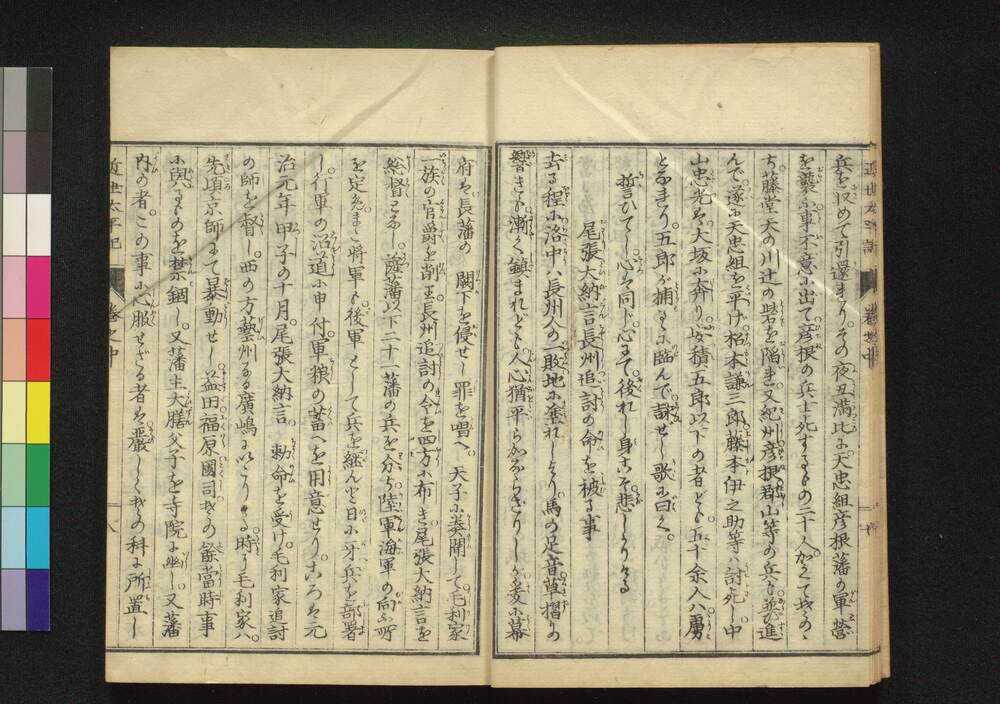 近世太平記 卷之中
兵を収めて引還せり。その夜丑満比に天忠組彦根藩の軍営
を襲ふ。事不意に出て彦根の兵士死するもの二十人。かくて我の
ち藤堂天の川辻の砦を陥る。又紀州彦根郡山等の兵も並び進
んで遂に天忠組を平げ松本謙三郎藤本伊之助等ハ討死し中
山忠光は大坂に奔り。安積五郎以下の者ども五十余人ハ虜
となれり五郎が捕らるに臨んで詠せし歌に曰く。
誓ひてし心は同じ心にて後れし身こそ悲しかりける
尾張大納言長州追討の命を被る事
去る程に洛中ハ長州人の一敗地に塗れしより。馬の足音草摺の
響きも漸く鎮まれども人心猶平らかならざりしが爰に幕
府は長藩の 闕下を侵せし罪を唱へ。 天子に奏聞して。毛利家
一族の官爵を削り長州追討の令を四方に布き尾張大納言を
総督となし。薩藩以下二十一藩の兵を分ち。陸軍海軍の向ふ所
を定めまた将軍も後軍として兵を継んと日に牙兵を部署
し。行軍の沿道に申付。軍粮の蓄へを用意せり。ころは元
治元年甲子の十月。尾張大納言。 勅命を受け。毛利家追討
の師を督し。西の方藝州なる廣嶋にいたりける時に毛利家ハ。
先頃京師にて暴動せし。益田福原國司我の餘當時事
に與るものを禁錮し。又藩主大膳父子を寺院に幽し。又藩
内の者。この事に心服せざる者は嚴しく我の科に所置し
近世太平記 卷之中 八